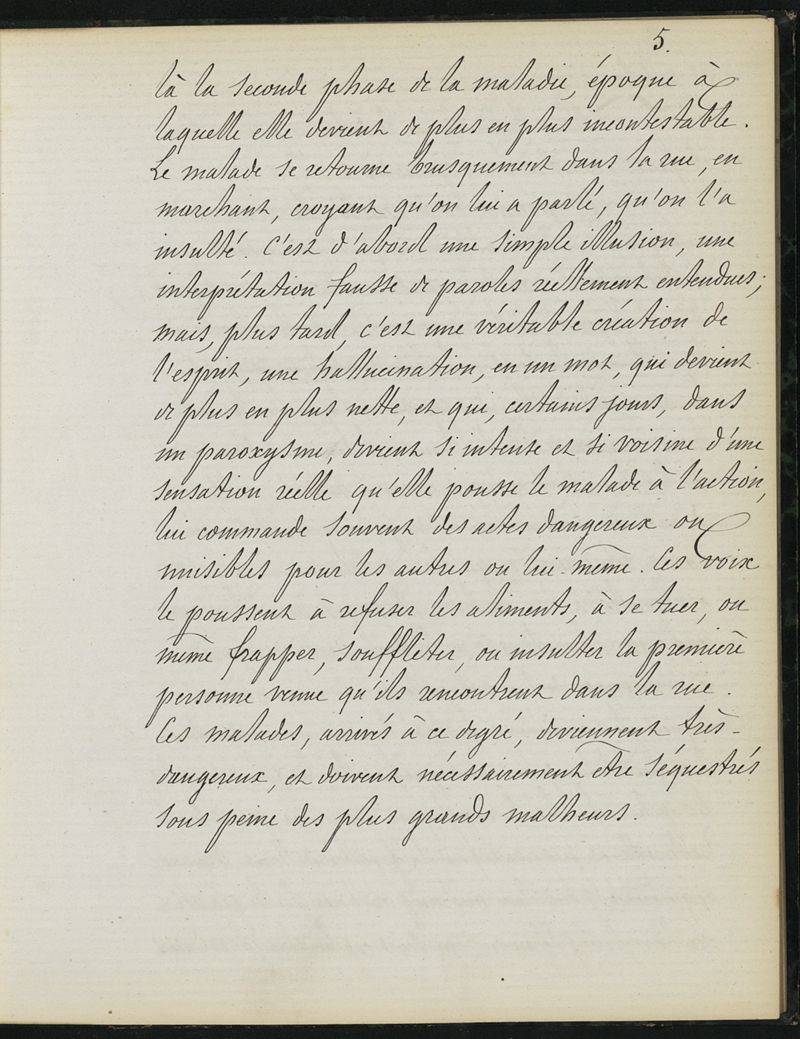 5.
là la seconde phase de la maladie, époque à
laquelle elle devient de plus en plus incontestable.
Le malade se retourne brusquement dans la rue, en
marchant, croyant qu'on lui a parlé, qu'on l'a
insulté. C'est d'abord une simple illusion, une
interprétation fausse de paroles réellement entendues;
mais, plus tard, c'est une véritable création de
l'esprit, une hallucination, en un mot, qui devient
de plus en plus nette, et qui, certains jours, dans
un paroxysme, devient si intense et si voisine d'une
sensation réelle qu'elle pousse le malade à l'action,
lui commande souvent des actes dangereux ou
nuisibles pour les autres ou lui-même. Ces voix
le poussent à refuser les aliments, à se tuer, ou
même frapper, souffleter, ou insulter la première
personne venue qu'ils rencontrent dans la rue.
Ces malades, arrivés à ce degré, deviennent très-
dangereux, et doivent nécessairement être séquestrés
sous peine des plus grands malheurs.